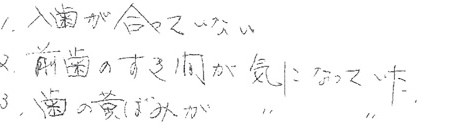 1. 入歯が合っていない
2. 前歯のすき間が気になっていた.
3. 歯の黄ばみが 〃 〃